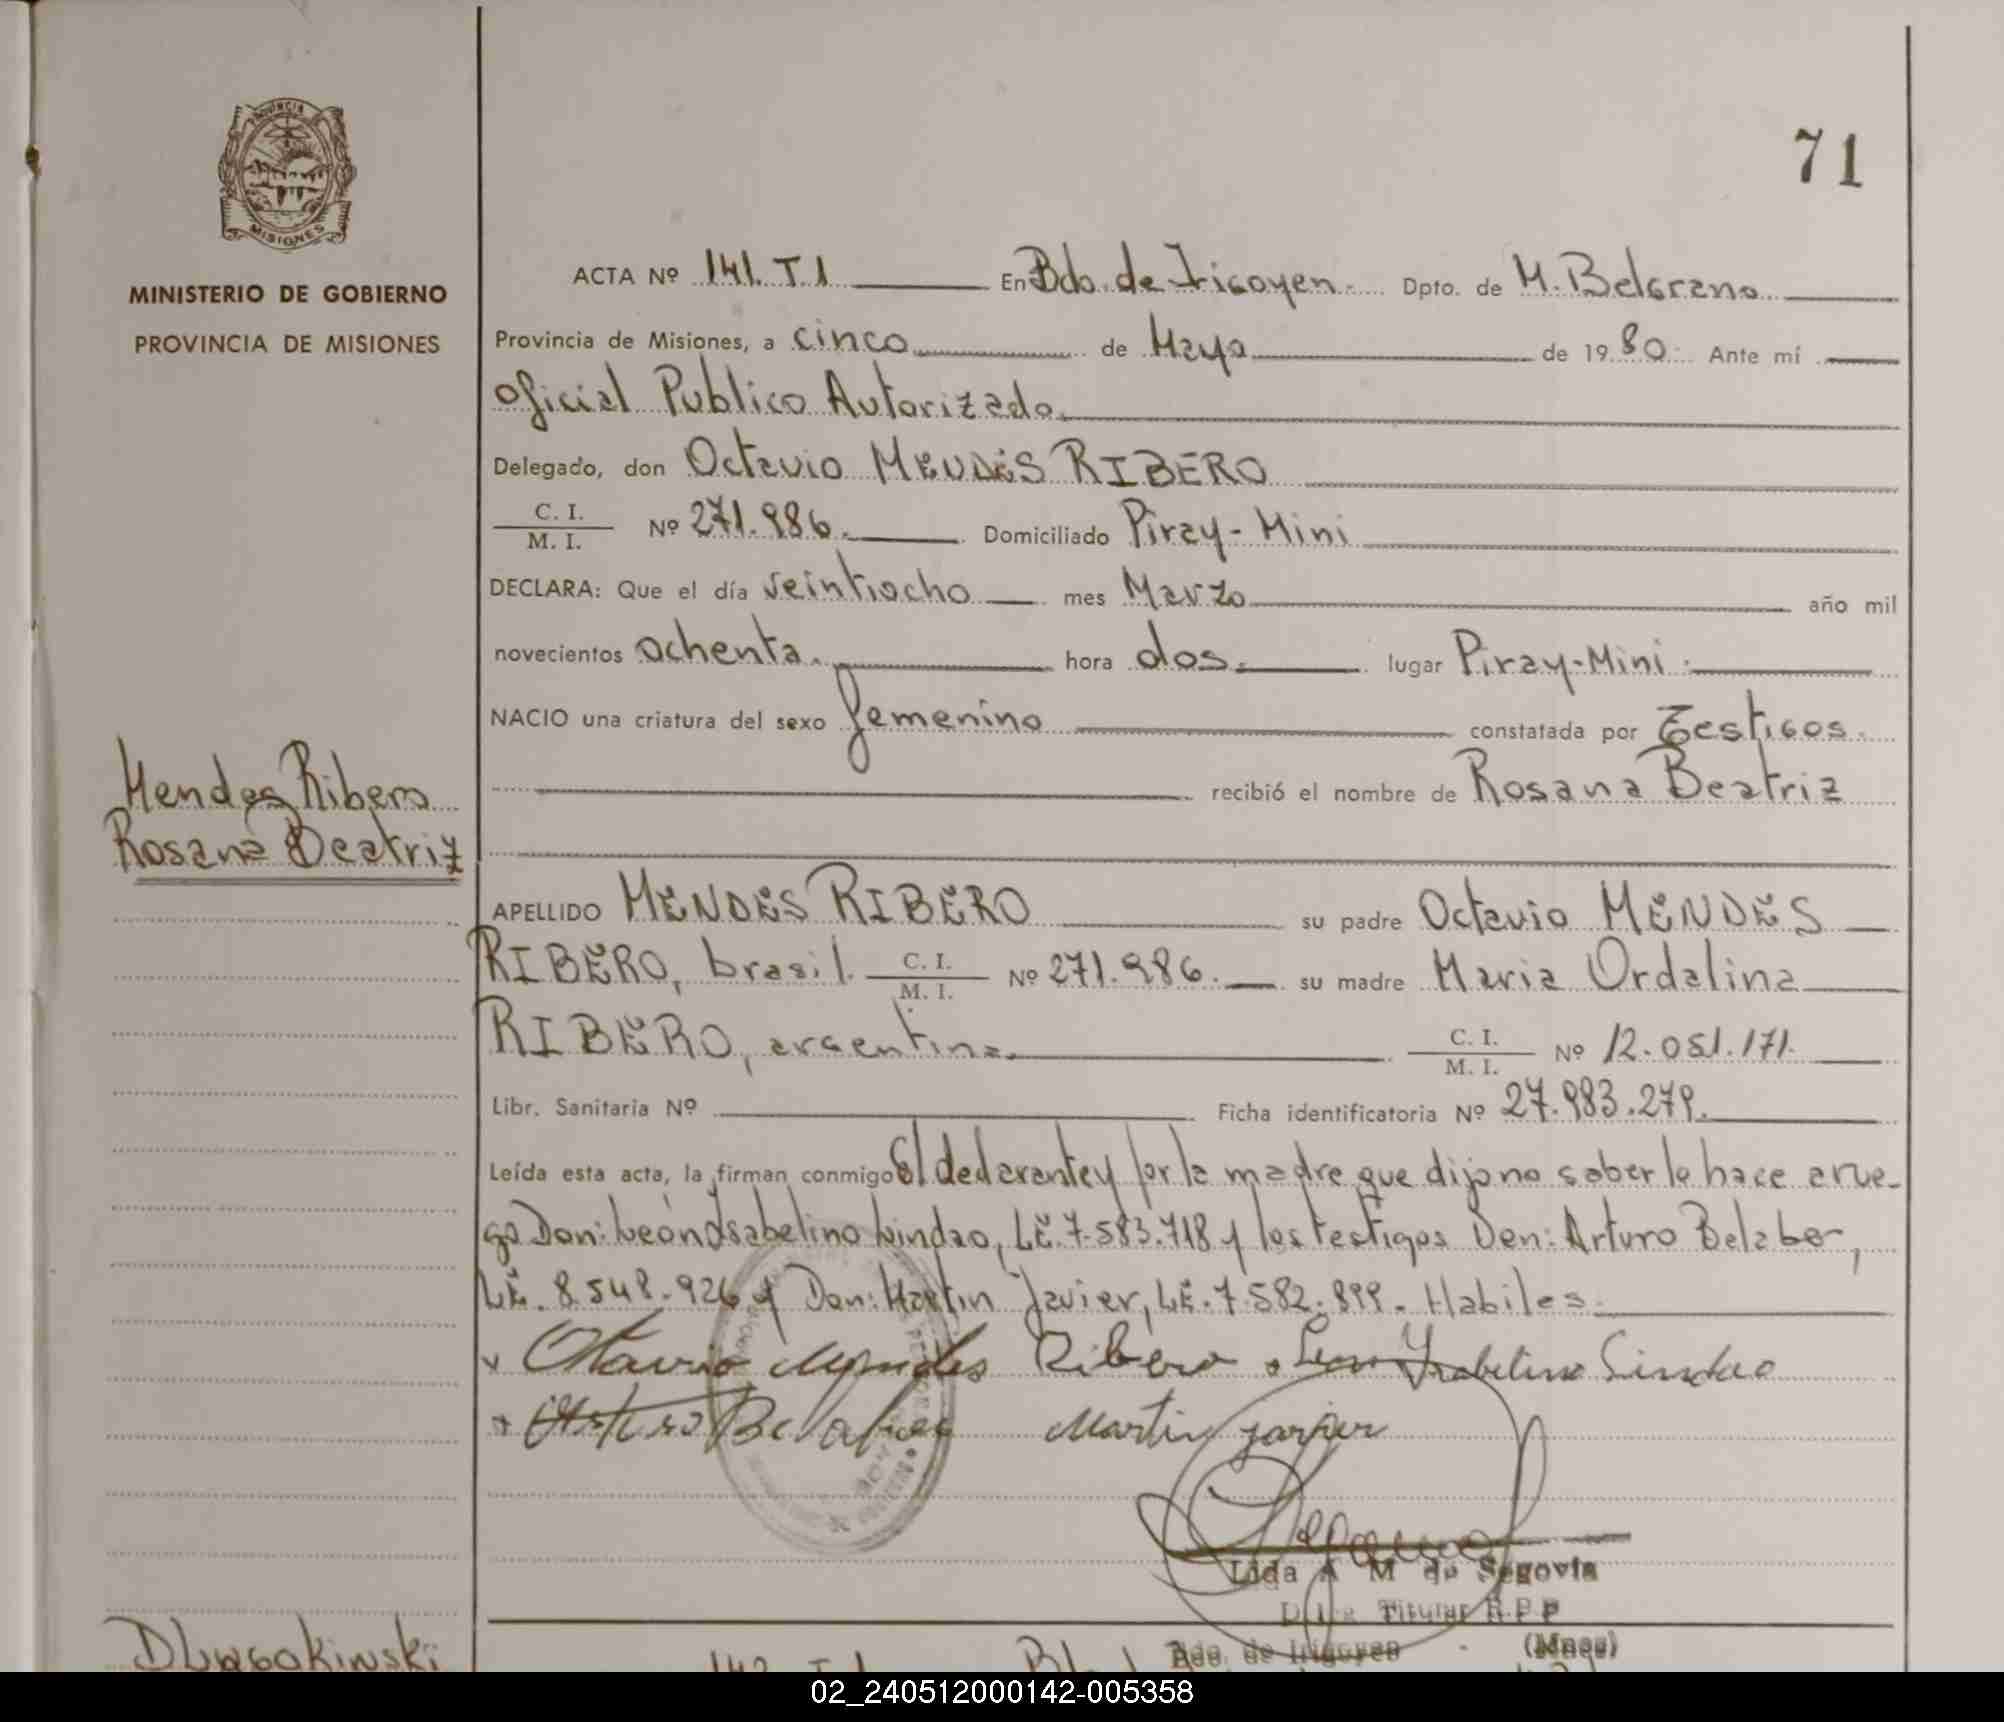 PROVINCIA
MISIONES
MINISTERIO DE GOBIERNO
PROVINCIA DE MISIONES
71
ACTA Nº 141. T.1 En Bdo. de Irigoyen. Dpto. de M. Belgrano
Provincia de Misiones, a cinco de Mayo de 1980. Ante mí
Oficial Publico Autorizado.
Delegado, don Octavio MENDES RIBERO
C. I.
M. I. Nº 271.986. Domiciliado Piray-Mini
DECLARA: Que el día veintiocho mes Marzo año mil
novecientos ochenta. hora dos. lugar Piray-Mini.
NACIO una criatura del sexo femenino constatada por Testigos.
recibió el nombre de Rosana Beatriz
Mendes Ribero
Rosana Beatriz
APELLIDO MENDES RIBERO su padre Octavio MENDES
RIBERO, brasil. C. I. M. I. Nº 271.986. su madre Maria Ordalina
RIBERO, argentina. C. I. M. I. Nº 12.051.171.
Libr. Sanitaria Nº Ficha identificatoria Nº 27.983.279.
Leída esta acta, la firman conmigo el declarante y por la madre que dijo no saber lo hace a rue-
go Don: León Isabelino Lindao, L.E. 7.583.718 y los testigos Don: Arturo Belaber,
L.E. 8.548.926 y Don: Martin Javier, L.E. 7.582.899. Habiles.
x Otavio Mendes Ribero x Leon Ysabelino Lindao
x Arturo Belaber Martin Javier
Lida A M de Segovia
Titular R.P.P
Bdo. de Irigoyen (Mnes)
Dlugokinski
142. T.1
02_240512000142-005358